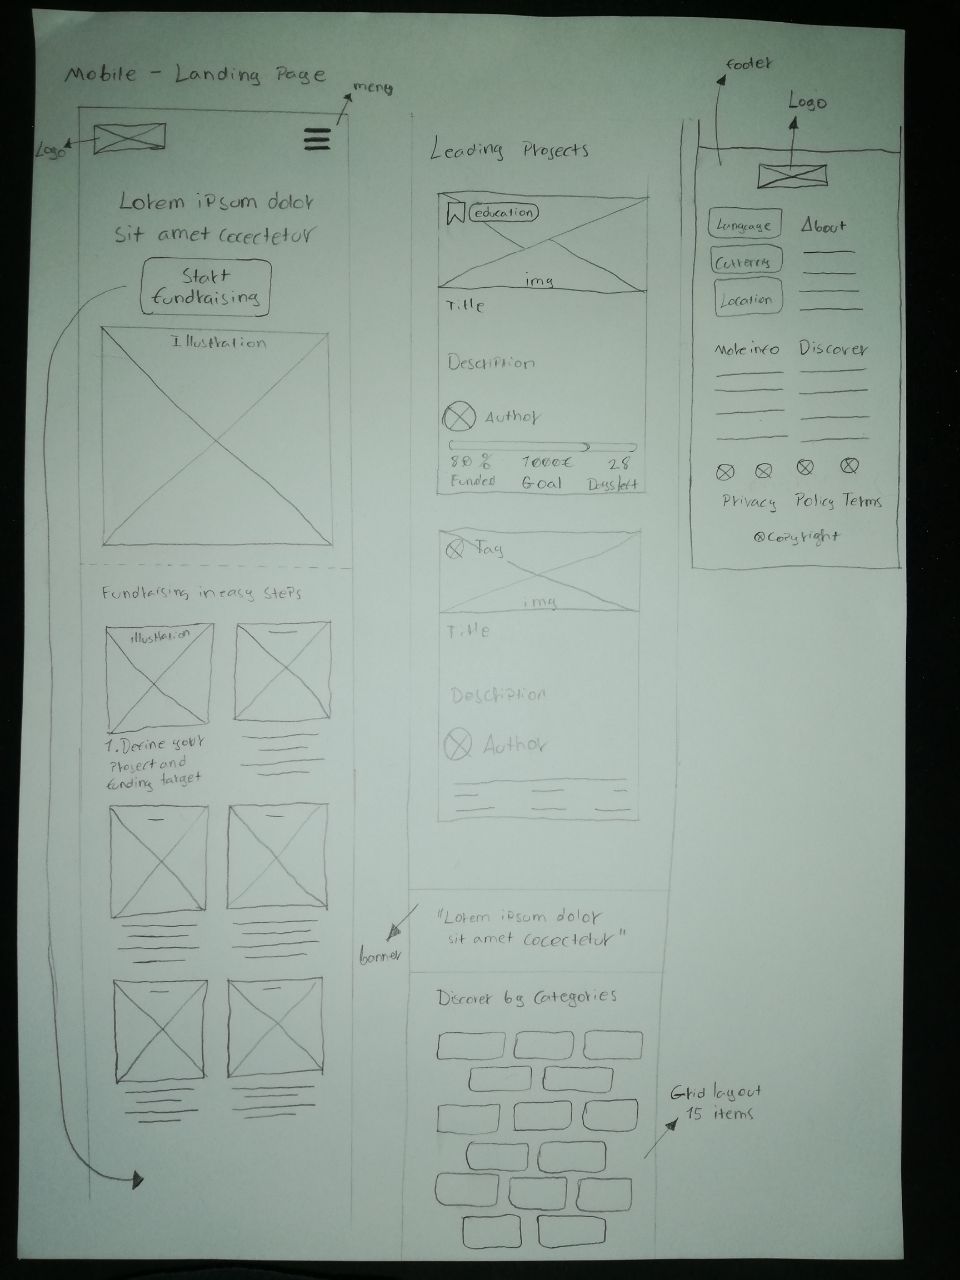 Mobile - Landing Page
menu
Logo
Lorem ipsum dolor
sit amet cocectetur
Start
fundraising
Illustration
Fundraising in easy steps
illustration
1. Define your
project and
funding target
Leading Projects
education
img
Title
Description
Author
80 % 1000€ 28
Funded Goal Days left
Tag
img
Title
Description
Author
banner
"Lorem ipsum dolor
sit amet cocectetur"
Discover by Categories
Grid layout
15 items
footer
Logo
Language
About
Currency
Location
More info Discover
Privacy Policy Terms
©Copyright